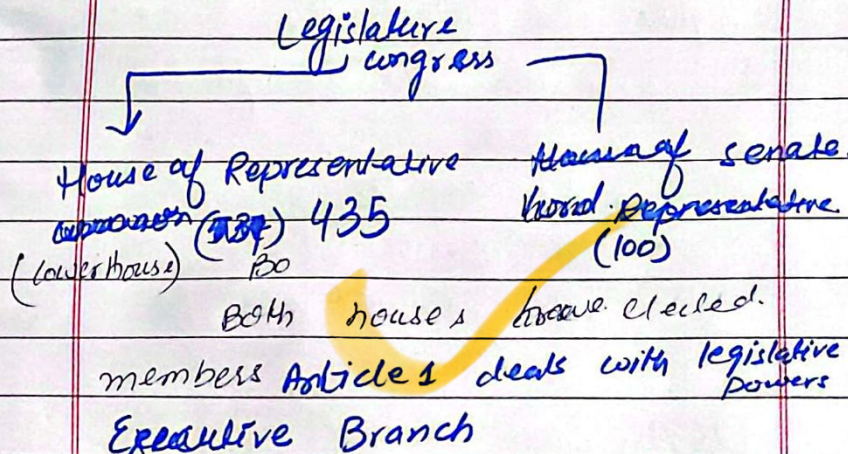 Legislature
congress
House of Representative
senate.
435
Representative
(100)
(lowerhouse)
Bo
Both houses have elected.
members Articles 1 deals with legislative
powers
Executive Branch